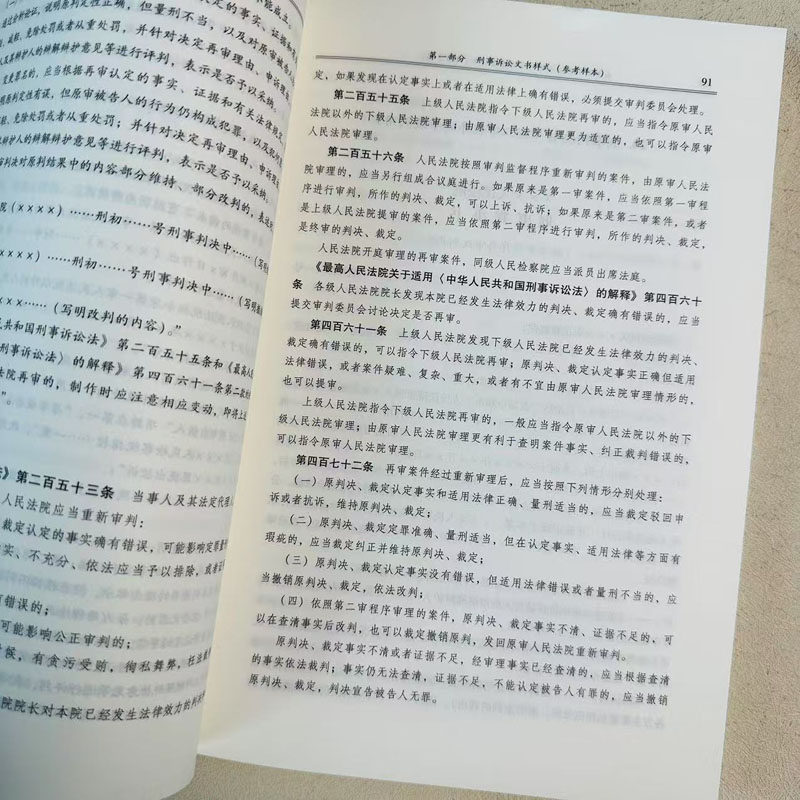 不能成立。
（一）通过分析论证，说明原判定性正确，但量刑不当，以及对原审被告人
、减轻、免除处罚或者从重处罚；并针对决定再审理由、申诉理
人及其辩护人的辩解辩护意见等进行评判，表示是否予以采纳。
变更罪名的，应当根据再审认定的事实、证据和有关法律规定，
明原判定性有误，但原审被告人的行为仍构成犯罪，以及
、免除处罚或者从重处罚；并针对决定再审理由、申诉理
护人的辩解辩护意见等进行评判，表示是否予以采纳。
审判决对原判结果中的内容部分维持、部分改判的，表述
院（××××）……刑初……号刑事判决中……（写明
（××××）……刑初……号刑事判决中……（写明
（写明改判的内容）。”
民共和国刑事诉讼法》第二百五十五条和《最高人
刑事诉讼法〉的解释》第四百六十一条第二款
法院再审的，制作时应注意相应变动，即将上
”。
法》第二百五十三条 当事人及其法定代理人
人民法院应当重新审判：
裁定认定的事实确有错误，可能影响定罪量
实、不充分、依法应当予以排除，或者证
有错误的；
可能影响公正审判的；
时候，有贪污受贿，徇私舞弊，枉法裁
院院长对本院已经发生法律效力的判决
第一部分 刑事诉讼文书样式（参考样本） 91
定，如果发现在认定事实上或者在适用法律上确有错误，必须提交审判委员会处理。
第二百五十五条 上级人民法院指令下级人民法院再审的，应当指令原审人民
法院以外的下级人民法院审理；由原审人民法院审理更为适宜的，也可以指令原审
人民法院审理。
第二百五十六条 人民法院按照审判监督程序重新审判的案件，由原审人民法
院审理的，应当另行组成合议庭进行。如果原来是第一审案件，应当依照第一审程
序进行审判，所作的判决、裁定，可以上诉、抗诉；如果原来是第二审案件，或者
是上级人民法院提审的案件，应当依照第二审程序进行审判，所作的判决、裁定，
是终审的判决、裁定。
人民法院开庭审理的再审案件，同级人民检察院应当派员出席法庭。
《最高人民法院关于适用〈中华人民共和国刑事诉讼法〉的解释》第四百六十
条 各级人民法院院长发现本院已经发生法律效力的判决、裁定确有错误的，应当
提交审判委员会讨论决定是否再审。
第四百六十一条 上级人民法院发现下级人民法院已经发生法律效力的判决、
裁定确有错误的，可以指令下级人民法院再审；原判决、裁定认定事实正确但适用
法律错误，或者案件疑难、复杂、重大，或者有不宜由原审人民法院审理情形的，
也可以提审。
上级人民法院指令下级人民法院再审的，一般应当指令原审人民法院以外的下
级人民法院审理；由原审人民法院审理更有利于查明案件事实、纠正裁判错误的，
可以指令原审人民法院审理。
第四百七十二条 再审案件经过重新审理后，应当按照下列情形分别处理：
（一）原判决、裁定认定事实和适用法律正确、量刑适当的，应当裁定驳回申
诉或者抗诉，维持原判决、裁定；
（二）原判决、裁定定罪准确、量刑适当，但在认定事实、适用法律等方面有
瑕疵的，应当裁定纠正并维持原判决、裁定；
（三）原判决、裁定认定事实没有错误，但适用法律错误或者量刑不当的，应
当撤销原判决、裁定，依法改判；
（四）依照第二审程序审理的案件，原判决、裁定事实不清、证据不足的，可
以在查清事实后改判，也可以裁定撤销原判，发回原审人民法院重新审判。
原判决、裁定事实不清或者证据不足，经审理事实已经查清的，应当根据查清
的事实依法裁判；事实仍无法查清，证据不足，不能认定被告人有罪的，应当撤销
原判决、裁定，判决宣告被告人无罪。